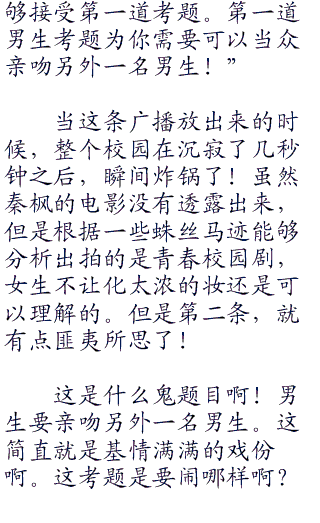 够接受第一道考题。第一道
男生考题为你需要可以当众
亲吻另外一名男生！”
当这条广播放出来的时
候，整个校园在沉寂了几秒
钟之后，瞬间炸锅了！虽然
秦枫的电影没有透露出来，
但是根据一些蛛丝马迹能够
分析出拍的是青春校园剧，
女生不让化太浓的妆还是可
以理解的。但是第二条，就
有点匪夷所思了！
这是什么鬼题目啊！男
生要亲吻另外一名男生。这
简直就是基情满满的戏份
啊。这考题是要闹哪样啊？